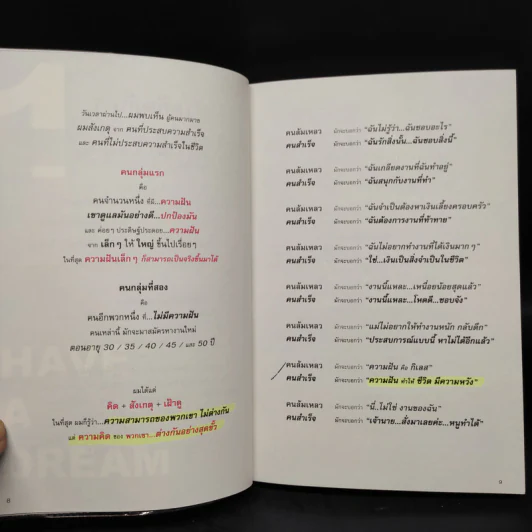 วันเวลาผ่านไป...ผมพบเห็น ผู้คนมากมาย
ผมสังเกตุ จาก คนที่ประสบความสำเร็จ
และ คนที่ไม่ประสบความสำเร็จในชีวิต
คนกลุ่มแรก
คือ
คนจำนวนหนึ่ง ที่มี...ความฝัน
เขาดูแลมันอย่างดี...ปกป้องมัน
และ ค่อยๆ ประดิษฐ์ประดอย...ความฝัน
จาก เล็กๆ ให้ ใหญ่ ขึ้นไปเรื่อยๆ
ในที่สุด ความฝันเล็กๆ ก็สามารถเป็นจริงขึ้นมาได้
คนกลุ่มที่สอง
คือ
คนอีกพวกหนึ่ง ที่...ไม่มีความฝัน
คนเหล่านี้ มักจะมาสมัครหางานใหม่
ตอนอายุ 30 / 35 / 40 / 45 / และ 50 ปี
ผมได้แต่
คิด + สังเกตุ + เฝ้าดู
ในที่สุด ผมก็รู้ว่า...ความสามารถของพวกเขา ไม่ต่างกัน
แต่ ความคิด ของ พวกเขา...ต่างกันอย่างสุดขั้ว
คนล้มเหลว มักจะบอกว่า "ฉันไม่รู้ว่า...ฉันชอบอะไร"
คนสำเร็จ มักจะบอกว่า "ฉันรักสิ่งนั้น...ฉันชอบสิ่งนี้"
คนล้มเหลว มักจะบอกว่า "ฉันเกลียดงานที่ฉันทำอยู่"
คนสำเร็จ มักจะบอกว่า "ฉันสนุกกับงานที่ทำ"
คนล้มเหลว มักจะบอกว่า "ฉันจำเป็นต้องหาเงินเลี้ยงครอบครัว"
คนสำเร็จ มักจะบอกว่า "ฉันต้องการงานที่ท้าทาย"
คนล้มเหลว มักจะบอกว่า "ฉันไม่อยากทำงานที่ได้เงินมากๆ"
คนสำเร็จ มักจะบอกว่า "ใช่...เงินเป็นสิ่งจำเป็นในชีวิต"
คนล้มเหลว มักจะบอกว่า "งานนี้แหละ...เหนื่อยน้อยสุดแล้ว"
คนสำเร็จ มักจะบอกว่า "งานนี้แหละ...โหดดี...ชอบจัง"
คนล้มเหลว มักจะบอกว่า "แม่ไม่อยากให้ทำงานหนัก กลับดึก"
คนสำเร็จ มักจะบอกว่า "ประสบการณ์แบบนี้ หาไม่ได้อีกแล้ว"
คนล้มเหลว มักจะบอกว่า "ความฝัน คือ กิเลส"
คนสำเร็จ มักจะบอกว่า "ความฝัน ทำให้ ชีวิต มีความหวัง"
คนล้มเหลว มักจะบอกว่า "นี่...ไม่ใช่ งานของฉัน"
คนสำเร็จ มักจะบอกว่า "เจ้านาย...สั่งมาเลยค่ะ...หนูทำได้"